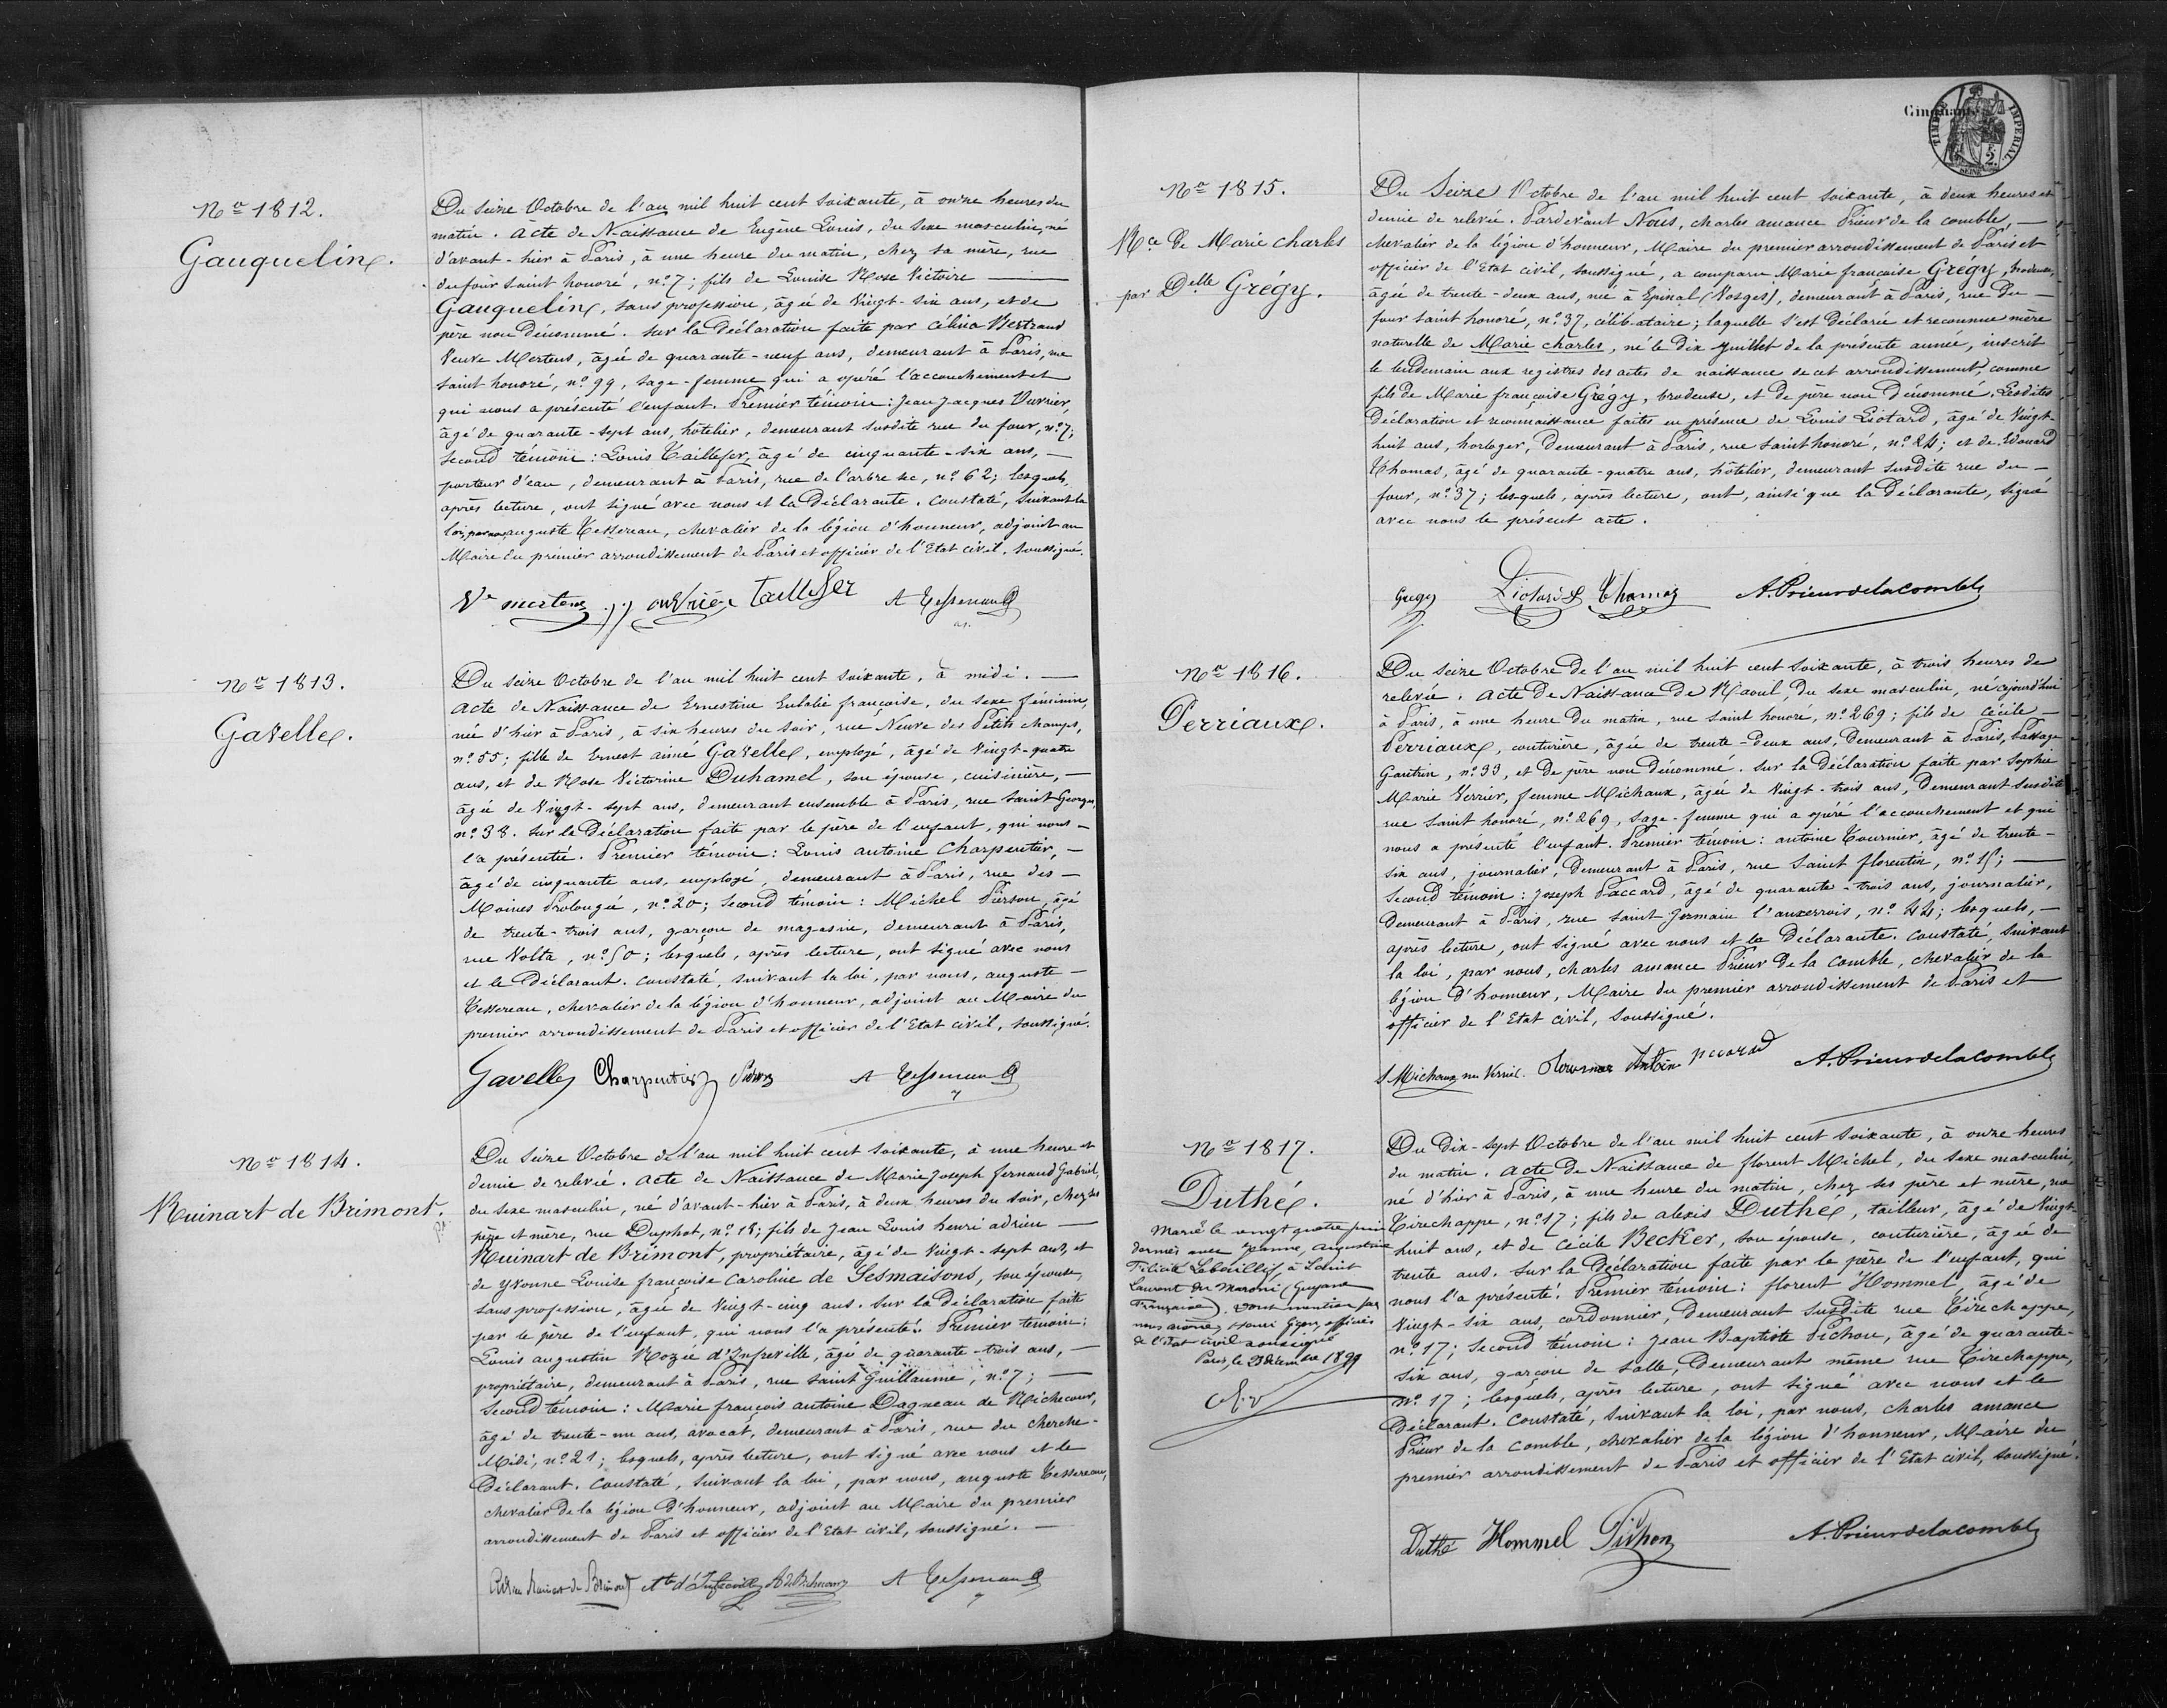 Nº 1812.
Gauquelin.
Du Seize Octobre de l'an mil huit cent soixante, à onze heures du
matin. Acte de Naissance de Eugène Louis, du sexe masculin, né
d'avant-hier à Paris, à une heure du matin, chez sa mère, rue
du four saint honoré, nº 7; fils de Louise Rose Victoire
Gauquelin, sans profession, âgée de vingt-six ans, et de
père non dénommé. Sur la Déclaration faite par Célina Bertrand
Veuve Mertens, âgée de quarante-neuf ans, demeurant à Paris, rue
saint honoré, nº 99, sage-femme qui a opéré l'accouchement et
qui nous a présenté l'enfant. Premier témoin: Jean Jacques
âgé de quarante-sept ans, hôtelier, demeurant susdite rue du four, nº 7;
second témoin: Louis Taillefer, âgé de cinquante-six ans,
porteur d'eau, demeurant à Paris, rue de l'arbre sec, nº 62; lesquels,
après lecture, ont signé avec nous et la Déclarante. Constaté, suivant la
loi, par nous, auguste Tessereau, chevalier de la légion d'honneur, adjoint au
Maire du premier arrondissement de Paris et officier de l'Etat civil, soussigné.
Ve mertens taillefer A Tessereau
Nº 1813.
Gavelle.
Du seize Octobre de l'an mil huit cent soixante, à midi.
Acte de Naissance de Ernestine Eulalie françoise, du sexe féminin,
née d'hier à Paris, à six heures du soir, rue Neuve des Petits champs,
nº 55; fille de Ernest aimé Gavelle, employé, âgé de vingt-quatre
ans, et de Rose Victorine Duhamel, son épouse, cuisinière,
âgée de vingt-sept ans, demeurant ensemble à Paris, rue Saint Georges,
nº 38. Sur la Déclaration faite par le père de l'enfant, qui nous
l'a présenté. Premier témoin: Louis antoine Charpentier,
âgé de cinquante ans, employé, demeurant à Paris, rue des
Moines Prolongée, nº 20; second témoin: Michel Pierson, âgé
de trente-trois ans, garçon de magasin, demeurant à Paris,
rue Volta, nº 50; lesquels, après lecture, ont signé avec nous
et le Déclarant. Constaté, suivant la loi, par nous, auguste
Tessereau, chevalier de la légion d'honneur, adjoint au Maire du
premier arrondissement de Paris et officier de l'Etat civil, soussigné.
Gavelle Charpentier A Tessereau
Nº 1814.
Ruinart de Brimont.
Du Seize Octobre de l'an mil huit cent soixante, à une heure et
demie de relevée. Acte de Naissance de Marie Joseph fernand Gabriel,
du sexe masculin, né d'avant-hier à Paris, à deux heures du soir, chez ses
père et mère, rue Duphot, nº 18; fils de Jean Louis henri adrien
Ruinart de Brimont, propriétaire, âgé de vingt-sept ans, et
de Yvonne Louise françoise Caroline de Sesmaisons, son épouse,
sans profession, âgée de vingt-cinq ans. Sur la Déclaration faite
par le père de l'enfant, qui nous l'a présenté. Premier témoin:
Louis augustin Rozée d'Infreville, âgé de quarante-trois ans,
propriétaire, demeurant à Paris, rue saint Guillaume, nº 7;
Second témoin: Marie françois antoine Dagneau de Richecour,
âgé de trente-un ans, avocat, demeurant à Paris, rue du Cherche-
Midi, nº 21; lesquels, après lecture, ont signé avec nous et le
Déclarant. Constaté, suivant la loi, par nous, auguste Tessereau,
chevalier de la légion d'honneur, adjoint au Maire du premier
arrondissement de Paris et officier de l'Etat civil, soussigné.
Ruinart de Brimont d'Infreville A Tessereau
TIMBRE IMPERIAL
Nº 1815.
Rce de Marie Charles
par Delle Grégy.
Du Seize Octobre de l'an mil huit cent soixante, à deux heures et
demie de relevée. Pardevant Nous, charles amance Prieur de la comble,
chevalier de la légion d'honneur, Maire du premier arrondissement de Paris et
officier de l'Etat civil, soussigné, a comparu Marie françoise Grégy, brodeuse,
âgée de trente-deux ans, née à Epinal (Vosges), demeurant à Paris, rue du
four saint honoré, nº 37, célibataire; laquelle s'est déclarée et reconnue mère
naturelle de Marie charles, né le dix juillet de la présente année, inscrit
le lendemain aux registres des actes de naissance de cet arrondissement, comme
fils de Marie françoise Grégy, brodeuse, et de père non dénommé. Lesdites
Déclaration et reconnaissance faites en présence de Louis Liotard, âgé de vingt-
huit ans, horloger, demeurant à Paris, rue saint honoré, nº 24; et de Edouard
Thomas, âgé de quarante-quatre ans, hôtelier, demeurant susdite rue du
four, nº 37; lesquels, après lecture, ont, ainsi que la Déclarante, signé
avec nous le présent acte.
Gregy Liotard Thomas A. Prieur de la comble
Nº 1816.
Perriaux.
Du seize Octobre de l'an mil huit cent soixante, à trois heures de
relevée. Acte de Naissance de Raoul, du sexe masculin, né aujourd'hui
à Paris, à une heure du matin, rue saint honoré, nº 269; fils de Cécile
Perriaux, couturière, âgée de trente-deux ans, demeurant à Paris, Passage
Gautrin, nº 33, et de père non dénommé. Sur la Déclaration faite par Sophie
Marie Verrier, femme Michaux, âgée de vingt-trois ans, demeurant susdite
rue saint honoré, nº 269, sage-femme qui a opéré l'accouchement et qui
nous a présenté l'enfant. Premier témoin: antoine Tournier, âgé de trente-
six ans, journalier, demeurant à Paris, rue saint florentin, nº 15;
Second témoin: Joseph Paccard, âgé de quarante-trois ans, journalier,
demeurant à Paris, rue saint Germain l'auxerrois, nº 44; lesquels,
après lecture, ont signé avec nous et la Déclarante. Constaté, suivant
la loi, par nous, charles amance Prieur de la comble, chevalier de la
légion d'honneur, Maire du premier arrondissement de Paris et
officier de l'Etat civil, soussigné.
A. Prieur de la comble
Nº 1817.
Duthé.
Marié le vingt quatre juin
dernier avec Jeanne, Augustine
à Saint
Laurent du Maroni (Guyane
Française). Dont mention par
nous officier
de l'Etat civil soussigné
Paris, le 1899
Du Dix-sept Octobre de l'an mil huit cent soixante, à onze heures
du matin. Acte de Naissance de florent Michel, du sexe masculin,
né d'hier à Paris, à une heure du matin, chez ses père et mère, rue
Tirechappe, nº 17; fils de alexis Duthé, tailleur, âgé de vingt-
huit ans, et de Cécile Becker, son épouse, couturière, âgée de
trente ans. Sur la Déclaration faite par le père de l'enfant, qui
nous l'a présenté. Premier témoin: florent Hommel, âgé de
vingt-six ans, cordonnier, demeurant susdite rue Tirechappe,
nº 17; second témoin: Jean Baptiste Pichon, âgé de quarante-
six ans, garçon de salle, demeurant même rue Tirechappe,
nº 17; lesquels, après lecture, ont signé avec nous et le
Déclarant. Constaté, suivant la loi, par nous, charles amance
Prieur de la comble, chevalier de la légion d'honneur, Maire du
premier arrondissement de Paris et officier de l'Etat civil, soussigné.
Duthé Hommel Pichon A. Prieur de la comble